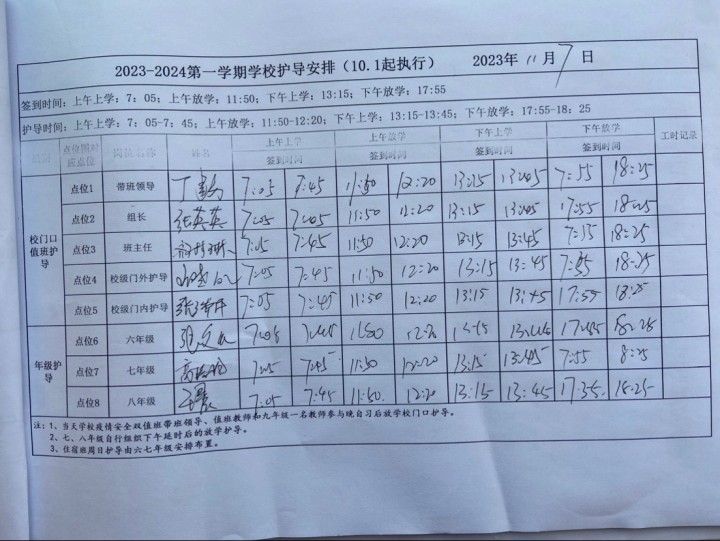 2023-2024第一学期学校护导安排（10.1起执行） 2023年 11月 7日
签到时间：上午上学：7：05；上午放学：11:50；下午上学：13:15；下午放学：17:55
护导时间：上午上学：7：05-7：45；上午放学：11:50-12:20；下午上学：13:15-13:45；下午放学：17:55-18：25
点位名称 姓名 上午上学 上午放学 下午上学 下午放学 工时记录
签到时间 签到时间 签到时间 签到时间
校门口值班护导
点位1 带班领导 7:05 7:45 11:50 12:20 13:15 7:55 18:25
点位2 组长 张英英 7:05 11:50 12:20 13:15 17:55 18:25
点位3 班主任 7:05 7:45 11:50 12:20 13:15 13:45 18:25
点位4 校级门外护导 7:05 7:45 11:50 12:20 13:15 13:45 18:25
点位5 校级门内护导 7:05 7:45 11:50 12:20 13:15 13:45 17:55 18:25
年级护导
点位6 六年级 7:05
点位7 七年级 7:05 7:45 11:50 12:20 13:15 13:45 7:55 8:25
点位8 八年级 7:05 7:45 11:50 12:20 13:15 13:45 17:55 18:25
注：1、当天学校疫情安全双值班带班领导、值班教师和九年级一名教师参与晚自习后放学校门口护导。
2、七、八年级自行组织下午延时后的放学护导。
3、住宿班周日护导由六七年级安排布置。